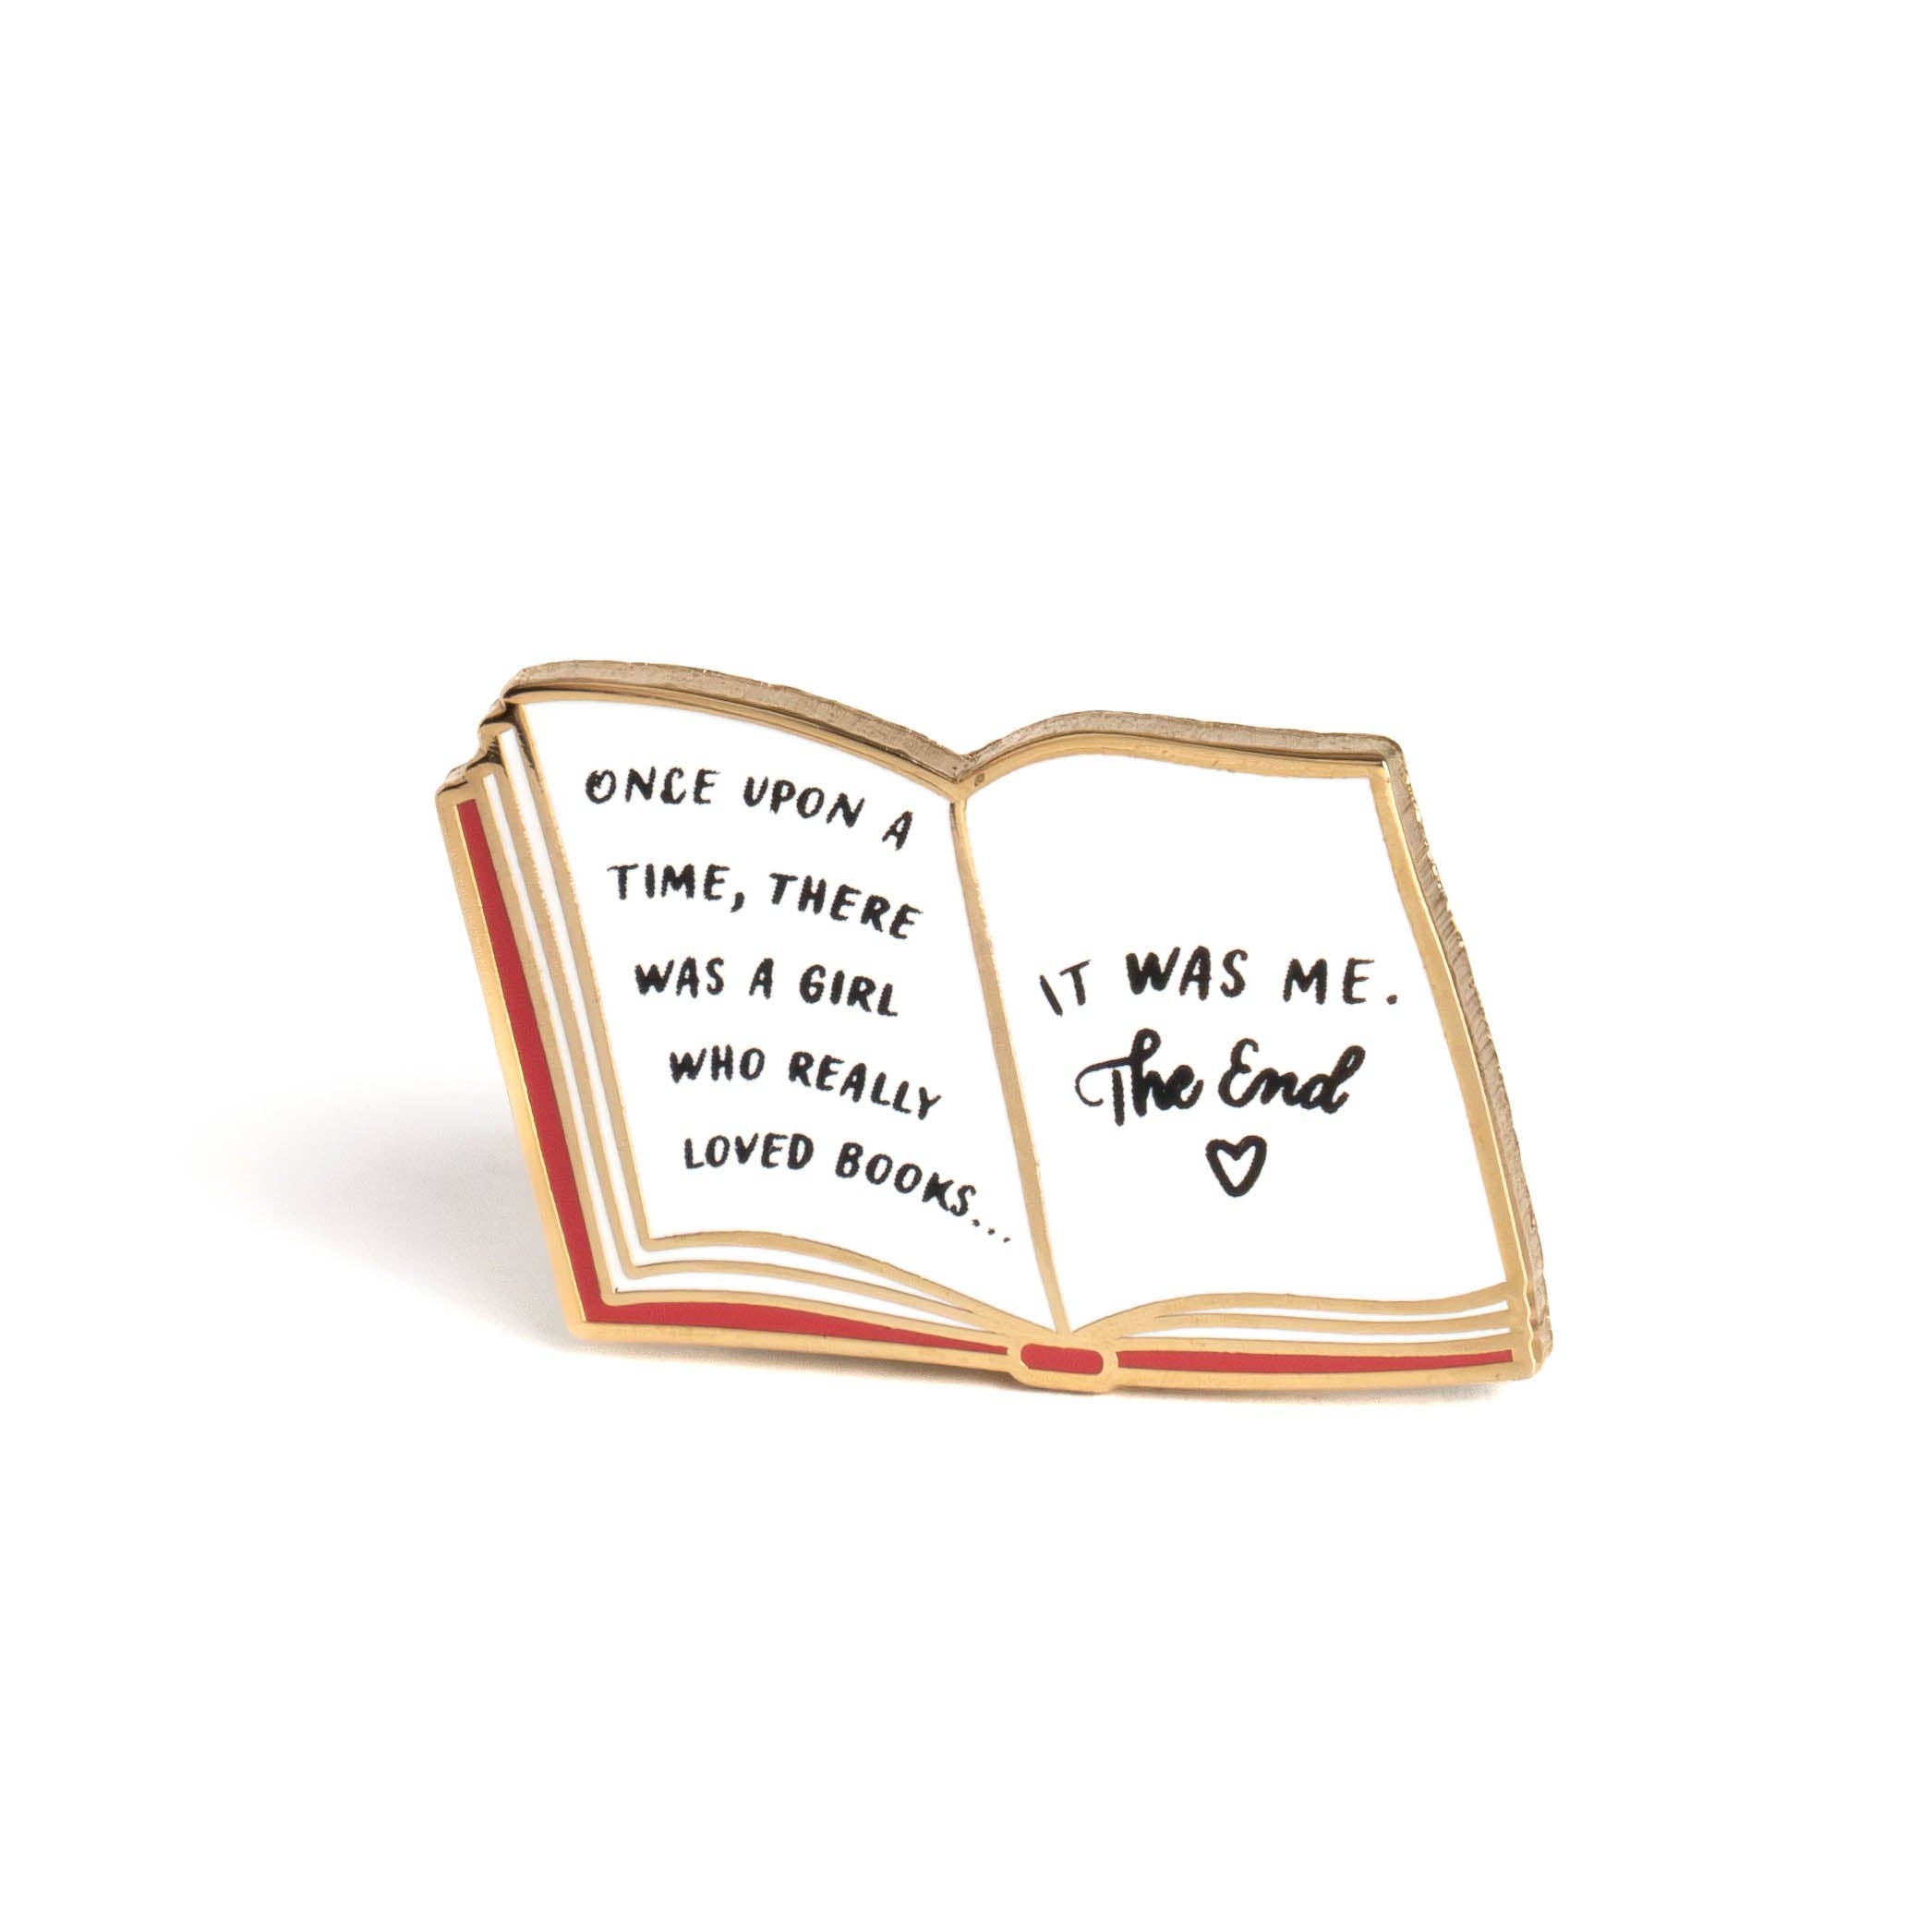 ONCE UPON A
TIME, THERE
WAS A GIRL
WHO REALLY
LOVED BOOKS...
IT WAS ME.
The End
♡